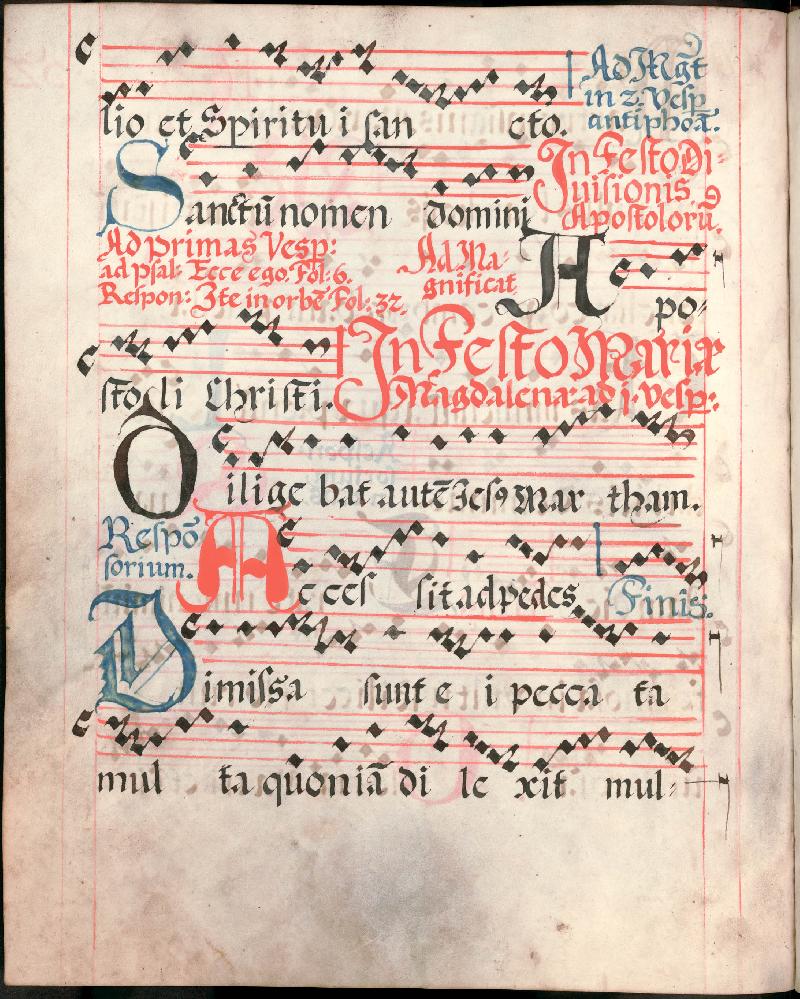 Ad Mg̃t
in 2. Vesp
antiphoã.
lio et Spiritu i san cto.
In Festo Di-
uisionis
Apostolorũ.
Sanctũ nomen Domini
Ad primas Vesp:
ad Psal: Ecce ego. Fol: 6.
Respon: Ite in orbẽ Fol: 32.
Ad Ma-
gnificat
A po-
stoli Christi.
In Festo Mariæ
Magdalenæ ad j. Vesp:
Dilige bat autẽ Jesꝰ Mar tham.
Respõ
sorium.
Acces sit ad pedes
Finis.
Dimissa sunt e i pecca ta
mul ta quoniã di le xit mul-